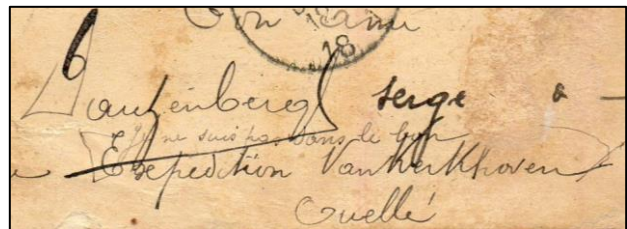 Ton ami
18
Dautzenberg serge
Je ne suis pas dans le bon
Expedition Vankerkhoven
Ouellé